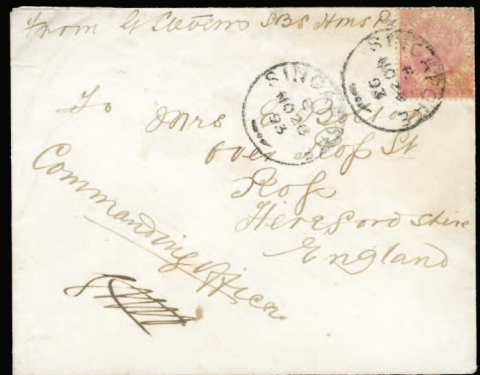 From G Stevens SBS Hms
SINGAPORE
E
NO 26
93
SINGAPORE
E
NO 26
93
To Mrs
over Ross St
Ross
Hereford shire
England
Commanding Officer